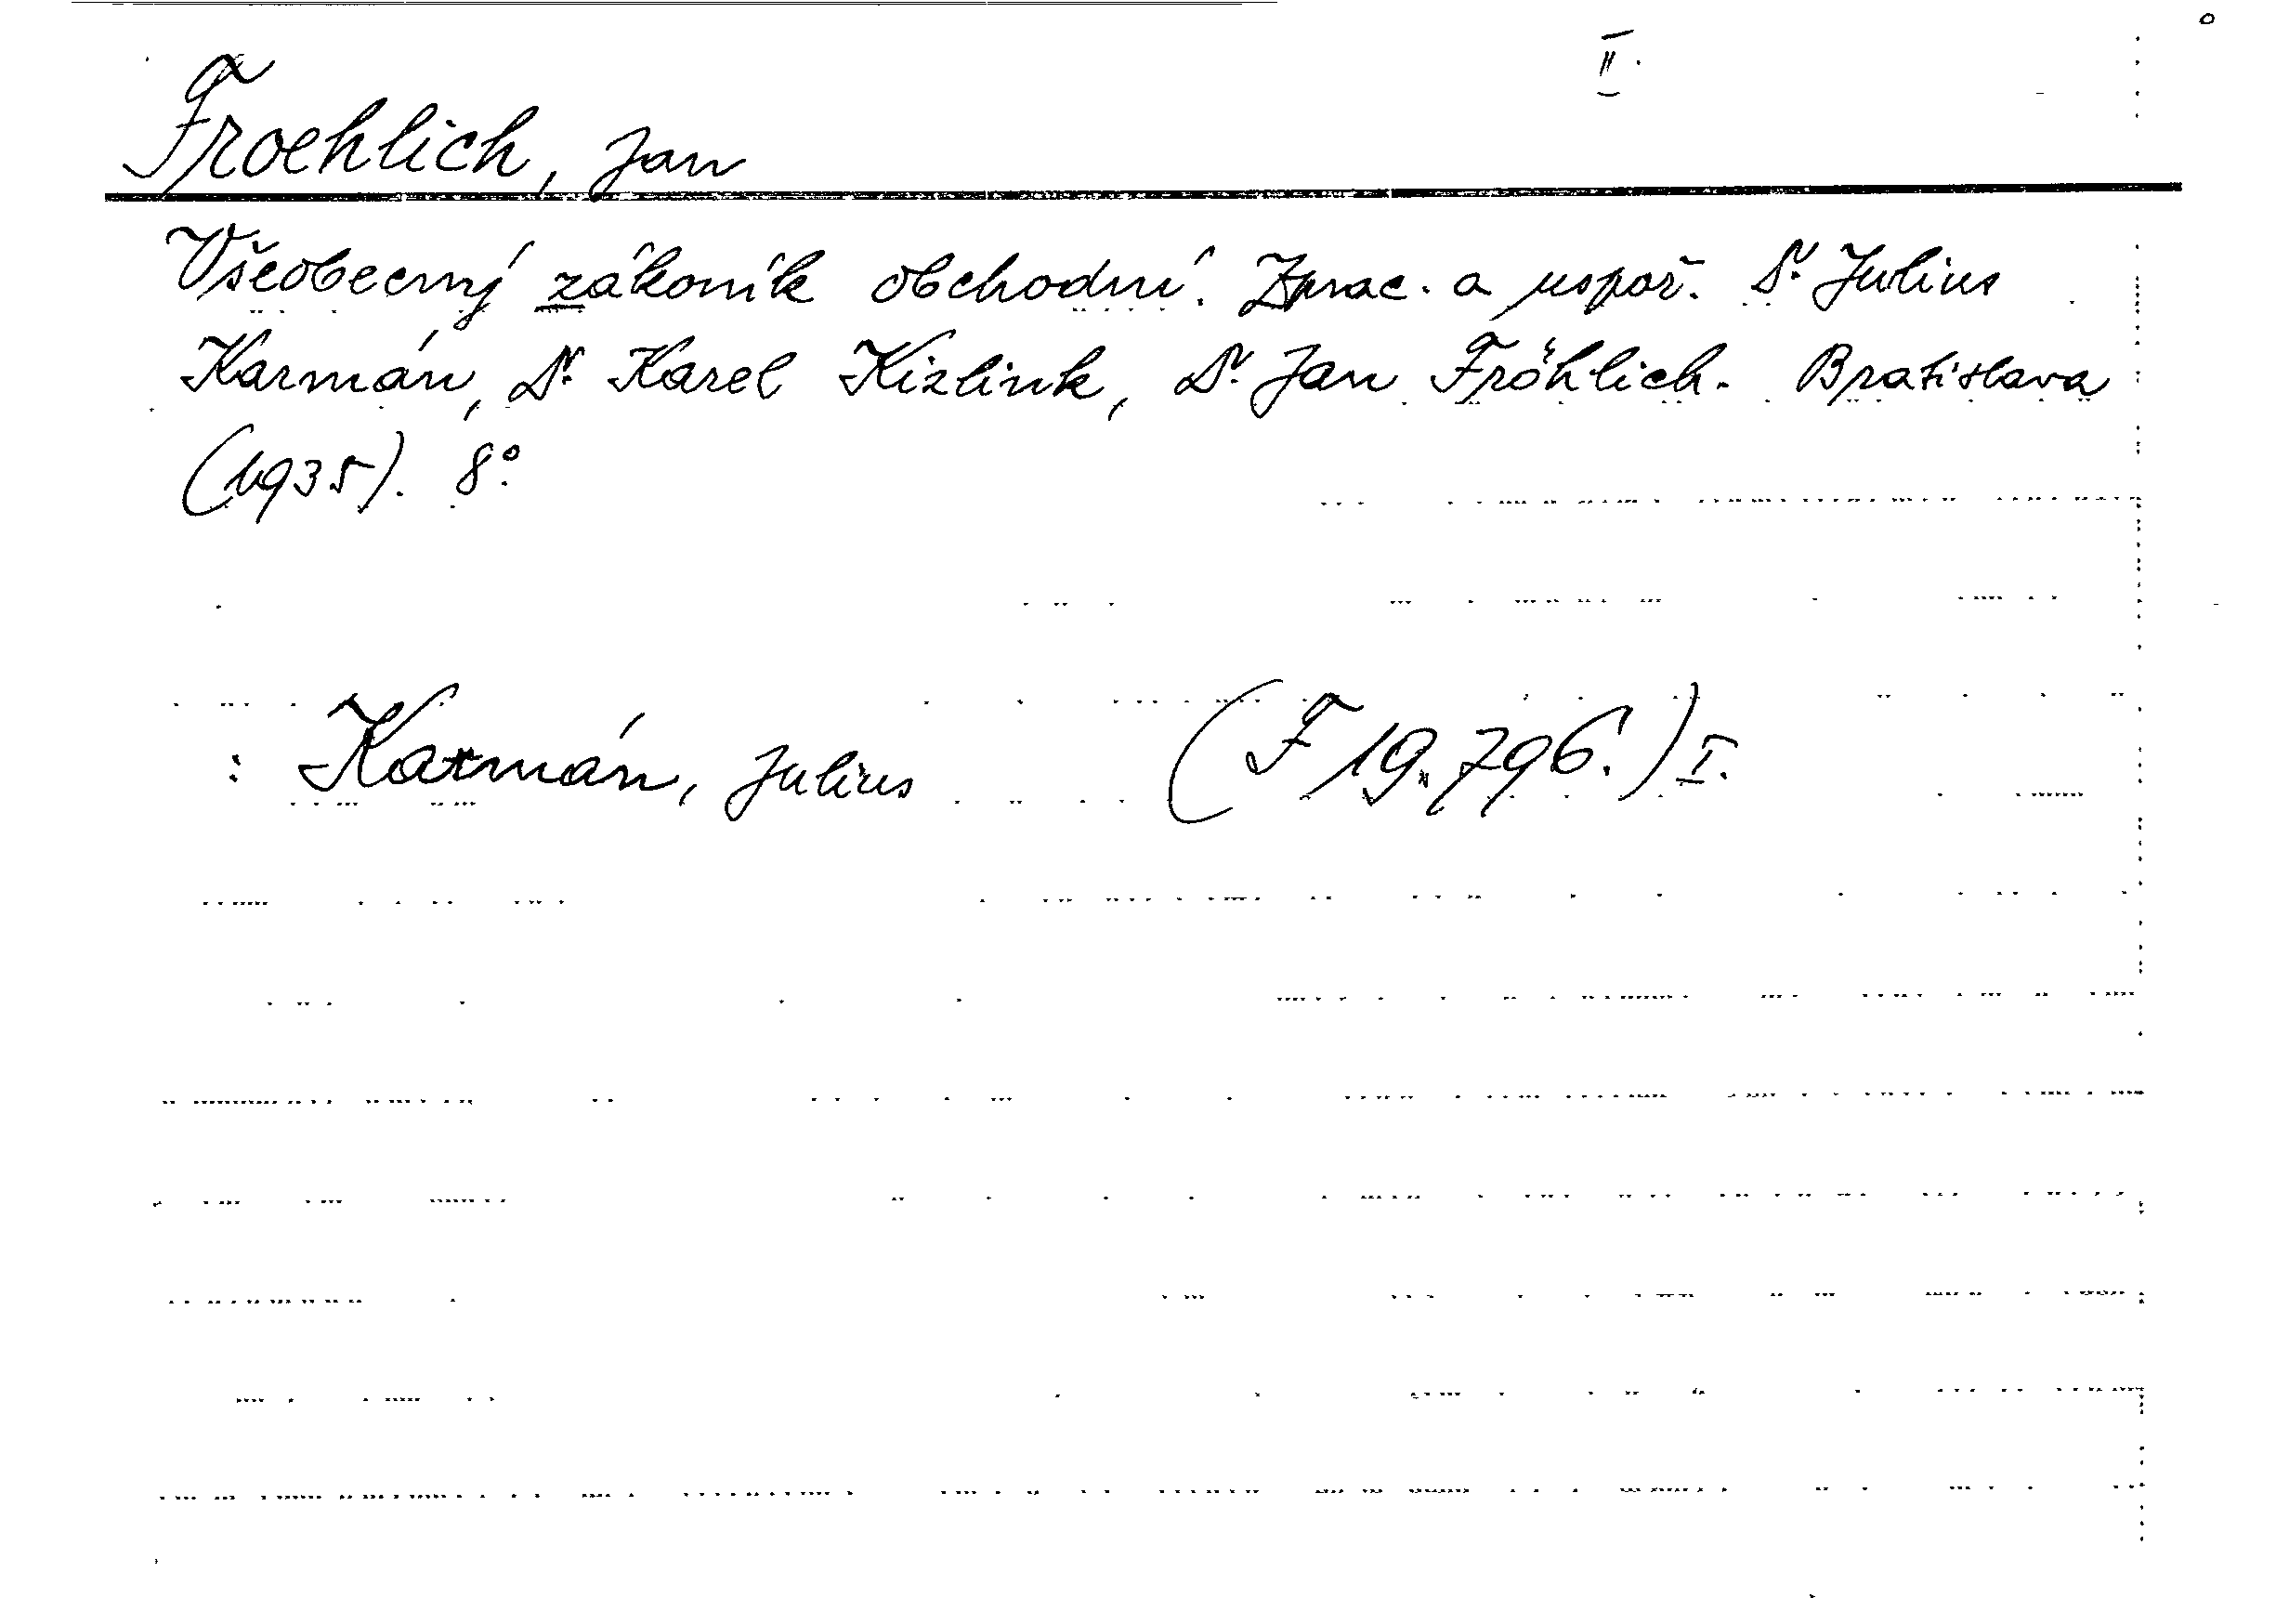 II.
Froehlich, Jan
Všeobecný zákoník obchodní. Zprac. a uspoř. Dr. Julius
Karmán, Dr. Karel Kizlink, Dr. Jan Fröhlich. Bratislava
(1935). 8°.
: Karmán, Julius (F 19.796.) I.